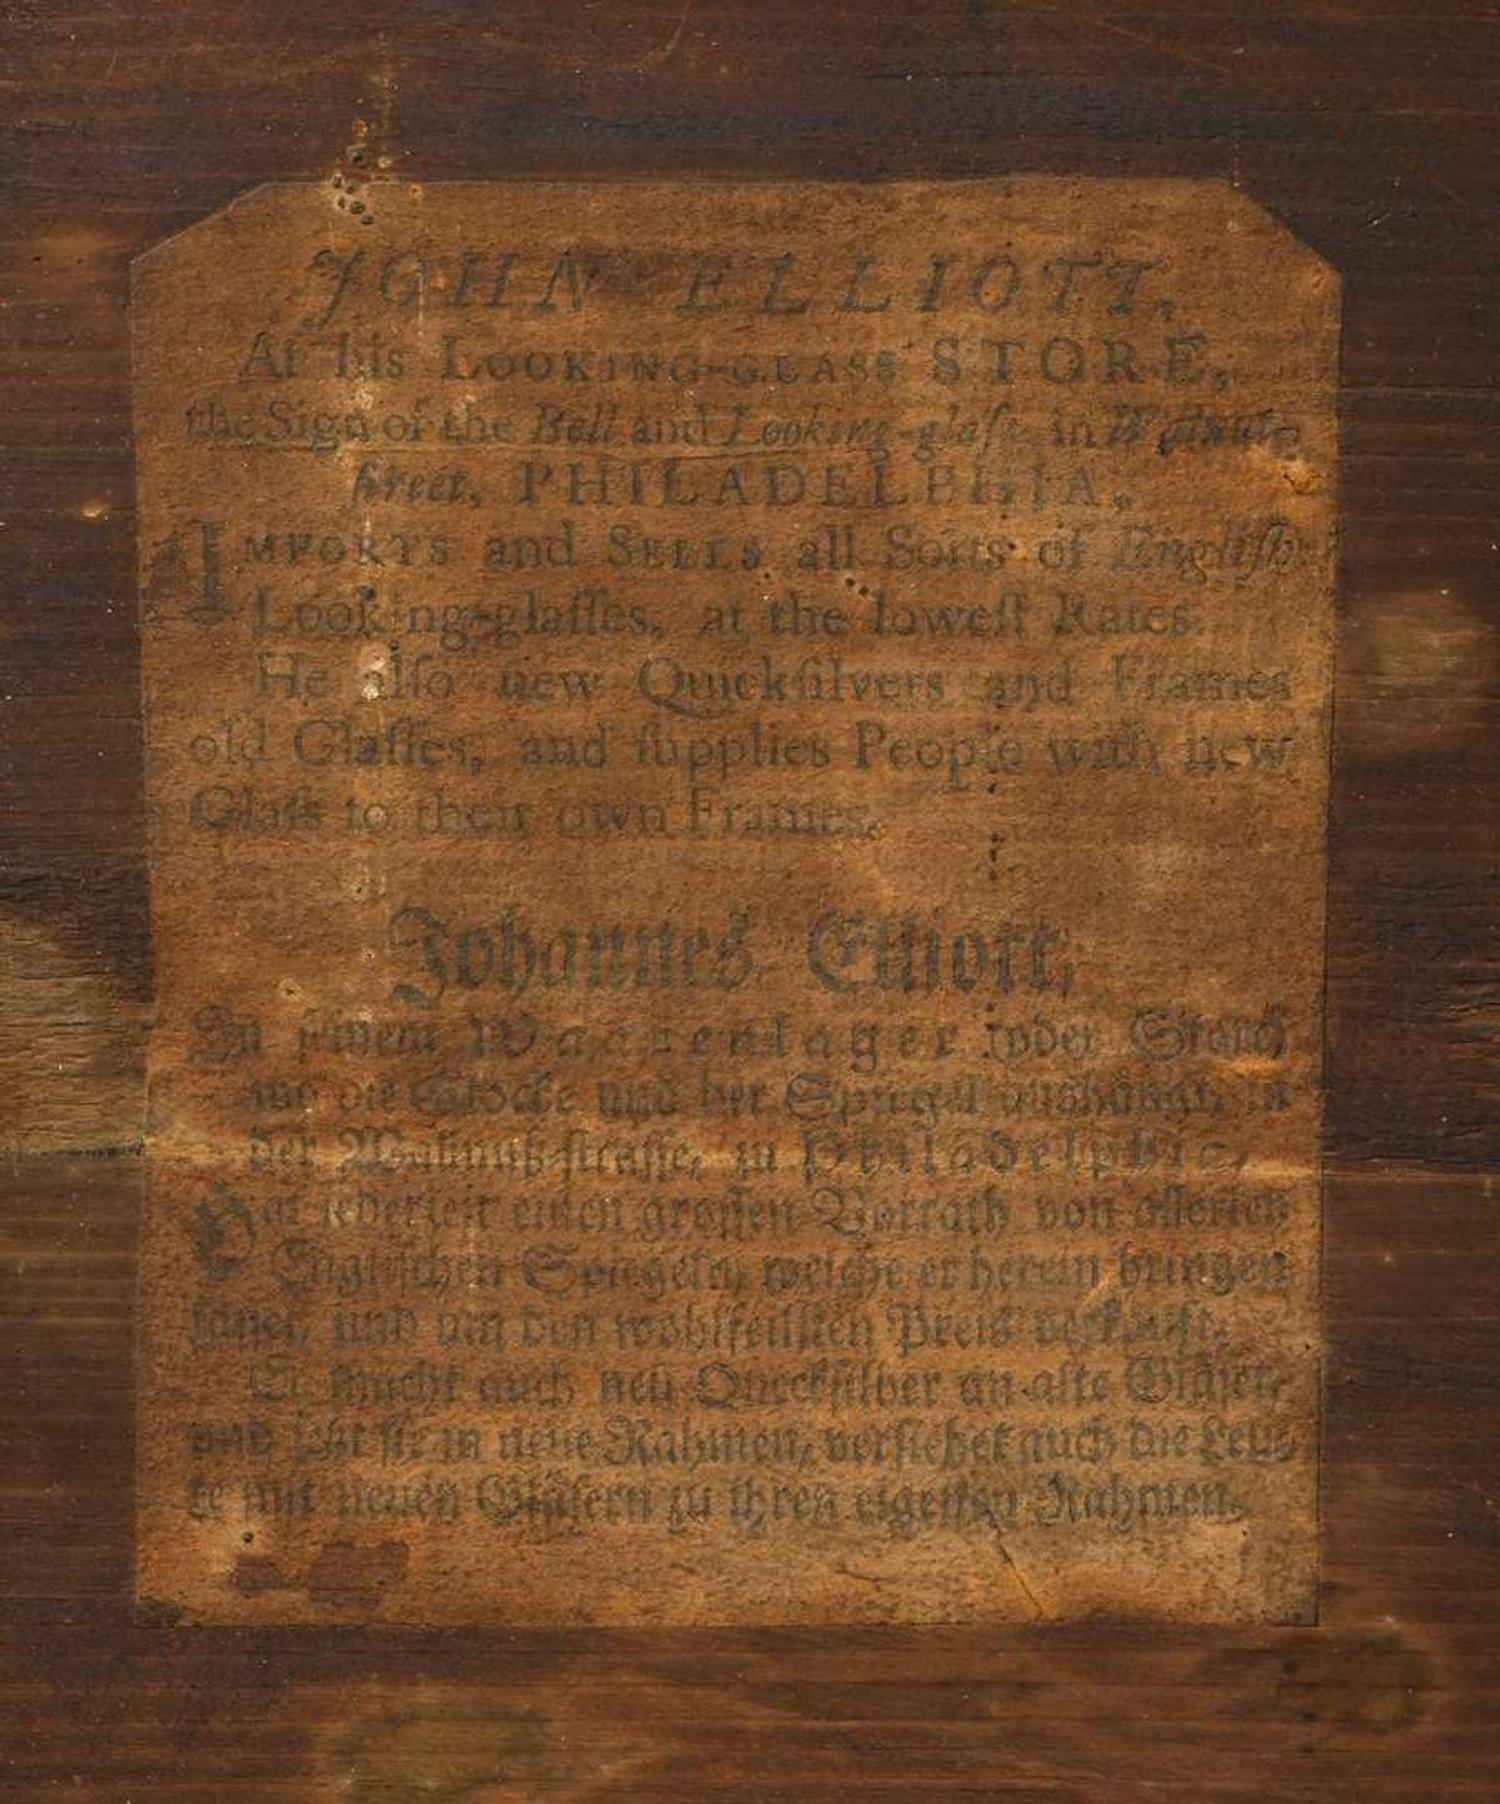 JOHN ELLIOTT,
At his LOOKING-GLASS STORE,
the Sign of the Bell and Looking-glaſs, in Walnut-
ſtreet, PHILADELPHIA,
IMPORTS and SELLS all Sorts of Engliſh
Looking-glaſſes, at the loweſt Rates.
He alſo new Quickſilvers and Frames
old Glaſſes, and ſupplies People with new
Glaſs to their own Frames.
Johannes Elliott,
In ſeinem Waarenlager oder
die Glocke und der Spiegel aushängt, in
der Wallnuß-ſtraſſe, in Philadelphia,
Hat jederzeit einen groſſen Vorrath von allerley
Engliſchen Spiegeln, welche er herein bringen
und um den wohlfeilſten Preis verkauft.
Er macht auch neu Queckſilber an alte Gläſer,
und ſetzt ſie in neue Rahmen, verſiehet auch die Leu-
te mit neuen Gläſern zu ihren eigenen Rahmen.